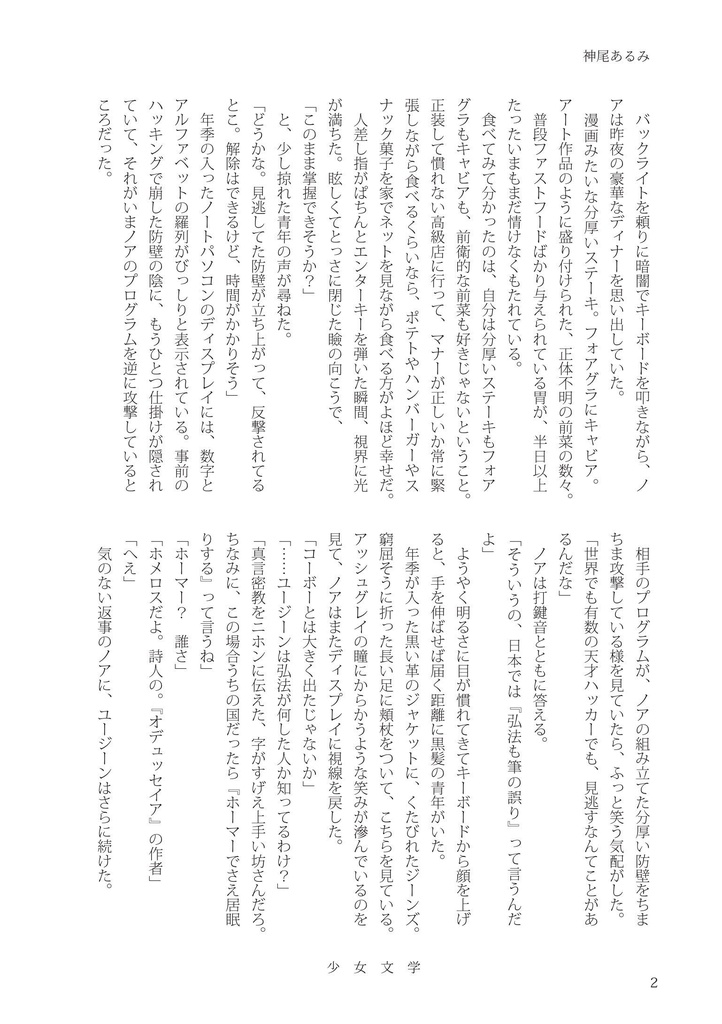 神尾あるみ
　バックライトを頼りに暗闇でキーボードを叩きながら、ノ
アは昨夜の豪華なディナーを思い出していた。
　漫画みたいな分厚いステーキ。フォアグラにキャビア。
アート作品のように盛り付けられた、正体不明の前菜の数々。
　普段ファストフードばかり与えられている胃が、半日以上
たったいまもまだ情けなくもたれている。
　食べてみて分かったのは、自分は分厚いステーキもフォア
グラもキャビアも、前衛的な前菜も好きじゃないということ。
正装して慣れない高級店に行って、マナーが正しいか常に緊
張しながら食べるくらいなら、ポテトやハンバーガーやス
ナック菓子を家でネットを見ながら食べる方がよほど幸せだ。
　人差し指がぱちんとエンターキーを弾いた瞬間、視界に光
が満ちた。眩しくてとっさに閉じた瞼の向こうで、
「このまま掌握できそうか？」
　と、少し掠れた青年の声が尋ねた。
「どうかな。見逃してた防壁が立ち上がって、反撃されてる
とこ。解除はできるけど、時間がかかりそう」
　年季の入ったノートパソコンのディスプレイには、数字と
アルファベットの羅列がびっしりと表示されている。事前の
ハッキングで崩した防壁の陰に、もうひとつ仕掛けが隠され
ていて、それがいまノアのプログラムを逆に攻撃していると
ころだった。
　相手のプログラムが、ノアの組み立てた分厚い防壁をちま
ちま攻撃している様を見ていたら、ふっと笑う気配がした。
「世界でも有数の天才ハッカーでも、見逃すなんてことがあ
るんだな」
　ノアは打鍵音とともに答える。
「そういうの、日本では『弘法も筆の誤り』って言うんだ
よ」
　ようやく明るさに目が慣れてきてキーボードから顔を上げ
ると、手を伸ばせば届く距離に黒髪の青年がいた。
　年季が入った黒い革のジャケットに、くたびれたジーンズ。
窮屈そうに折った長い足に頬杖をついて、こちらを見ている。
アッシュグレイの瞳にからかうような笑みが滲んでいるのを
見て、ノアはまたディスプレイに視線を戻した。
「コーボーとは大きく出たじゃないか」
「……ユージーンは弘法が何した人か知ってるわけ？」
「真言密教をニホンに伝えた、字がすげえ上手い坊さんだろ。
ちなみに、この場合うちの国だったら『ホーマーでさえ居眠
りする』って言うね」
「ホーマー？　誰さ」
「ホメロスだよ。詩人の。『オデュッセイア』の作者」
「へえ」
　気のない返事のノアに、ユージーンはさらに続けた。
少女文学
2